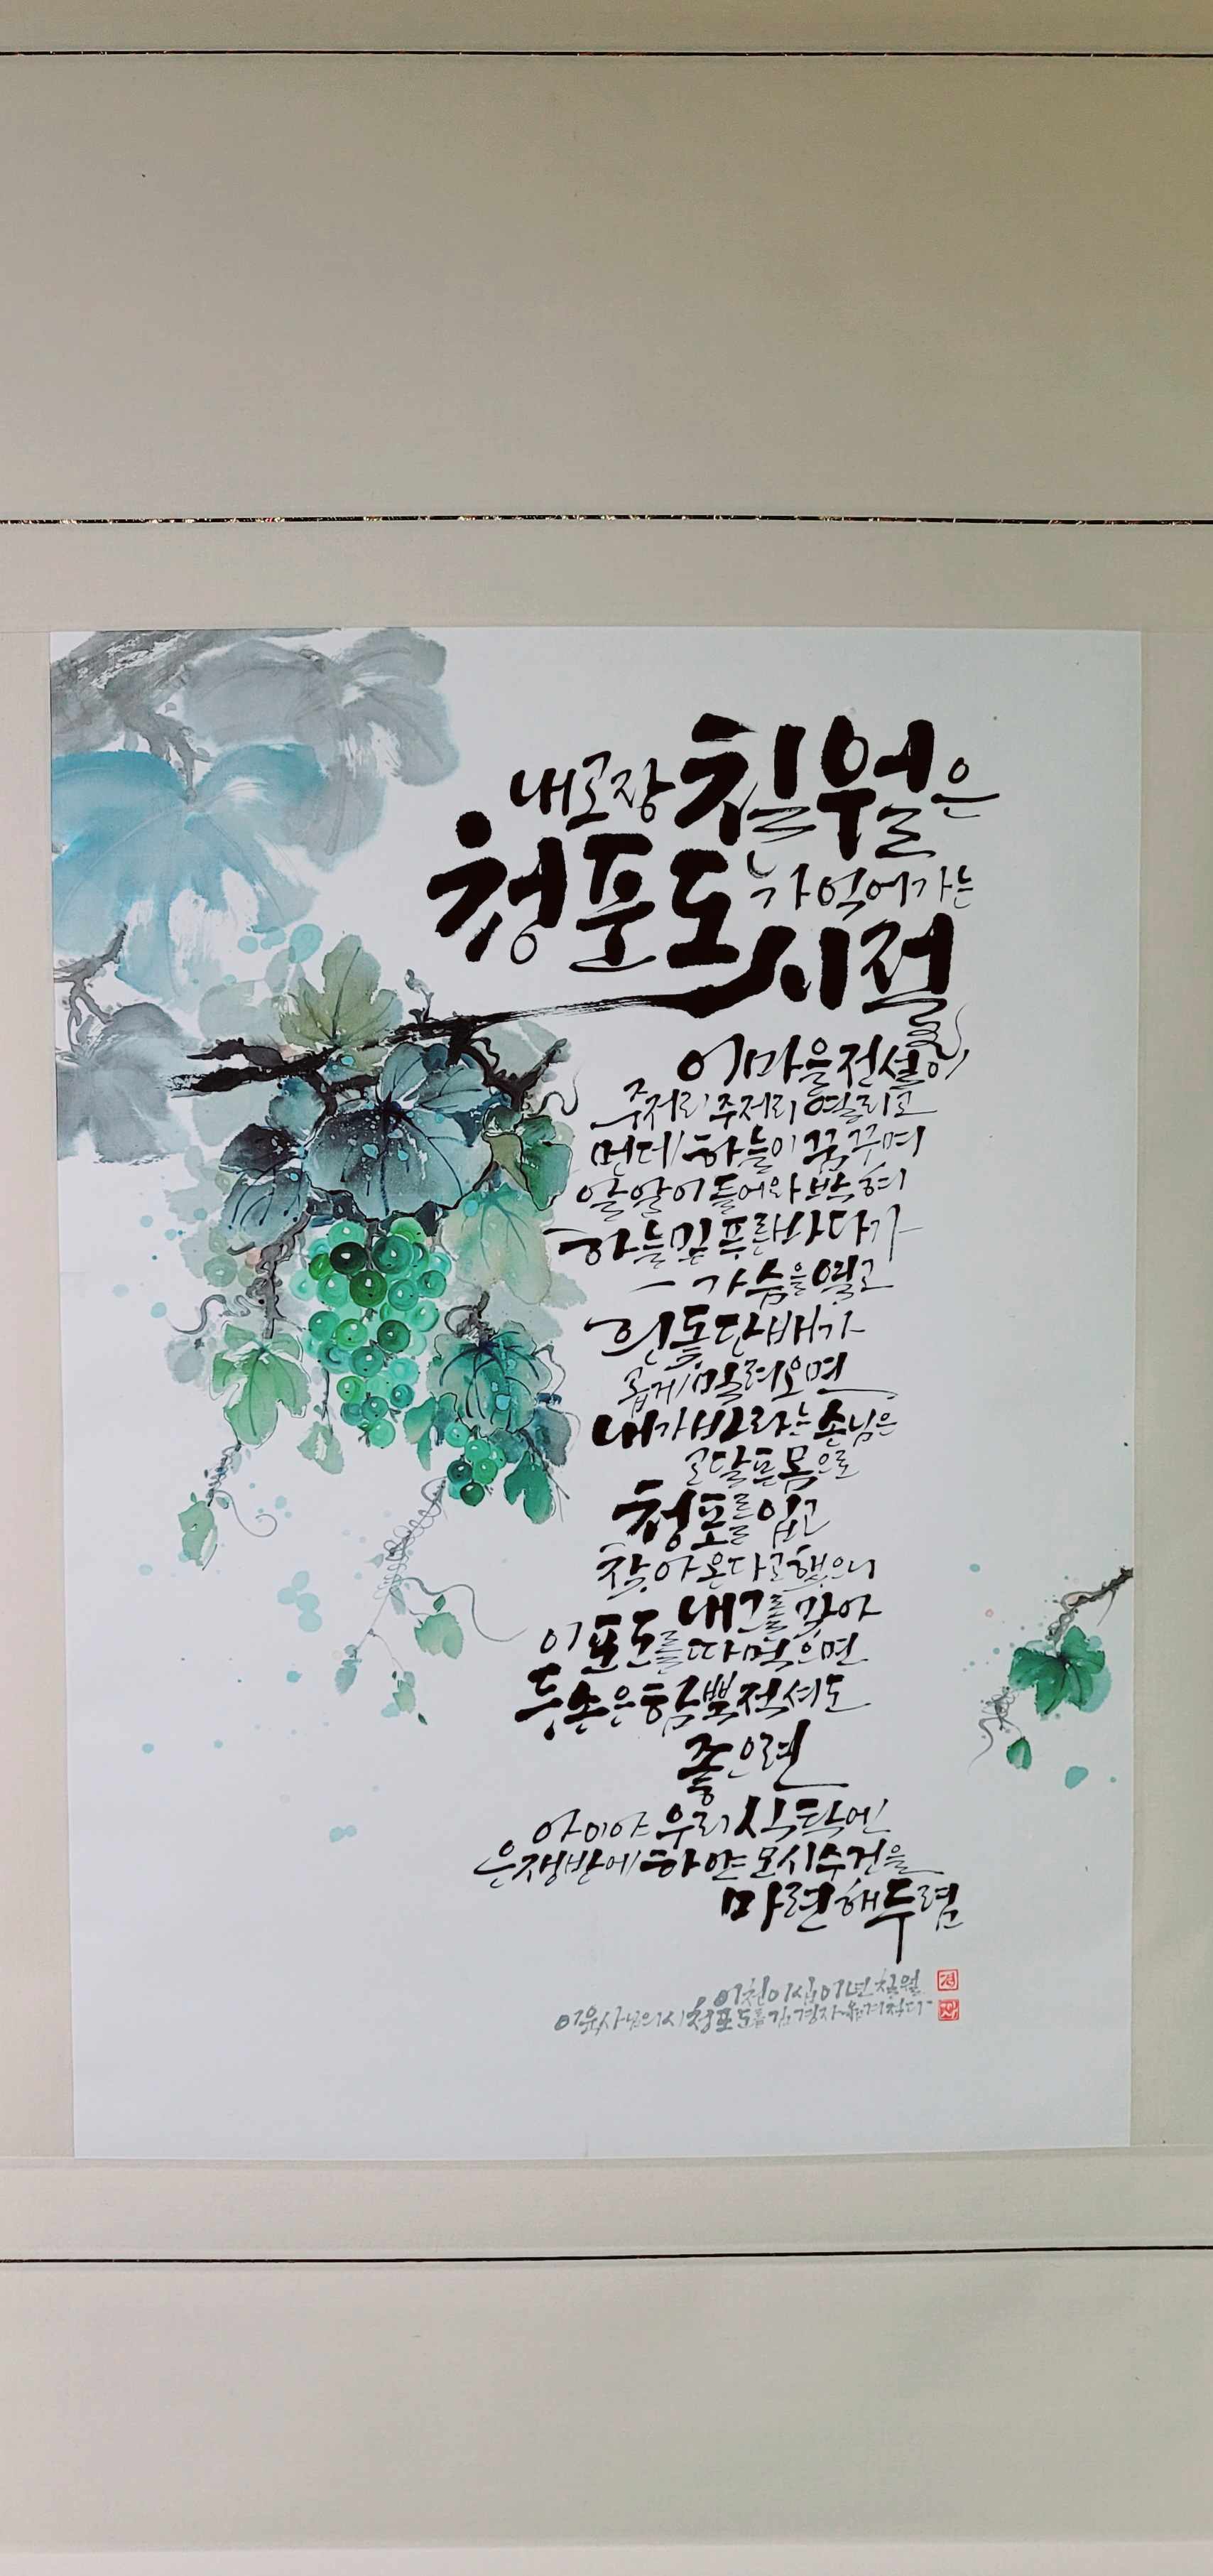 내 고장 칠월은
청포도가 익어가는
시절
이 마을 전설이
주저리 주저리 열리고
먼데 하늘이 꿈꾸며
알알이 들어와 박혀
하늘 밑 푸른 바다가
가슴을 열고
흰 돛단배가
곱게 밀려오면
내가 바라는 손님은
고달픈 몸으로
청포를 입고
찾아온다고 했으니
내 그를 맞아
이 포도를 따먹으면
두 손은 함뿍 적셔도
좋으련
아이야 우리 식탁엔
은쟁반에 하얀 모시수건을
마련해두렴
이천이십이년 칠월
이육사님의 시 청포도를 김경자 옮겨적다
경
자